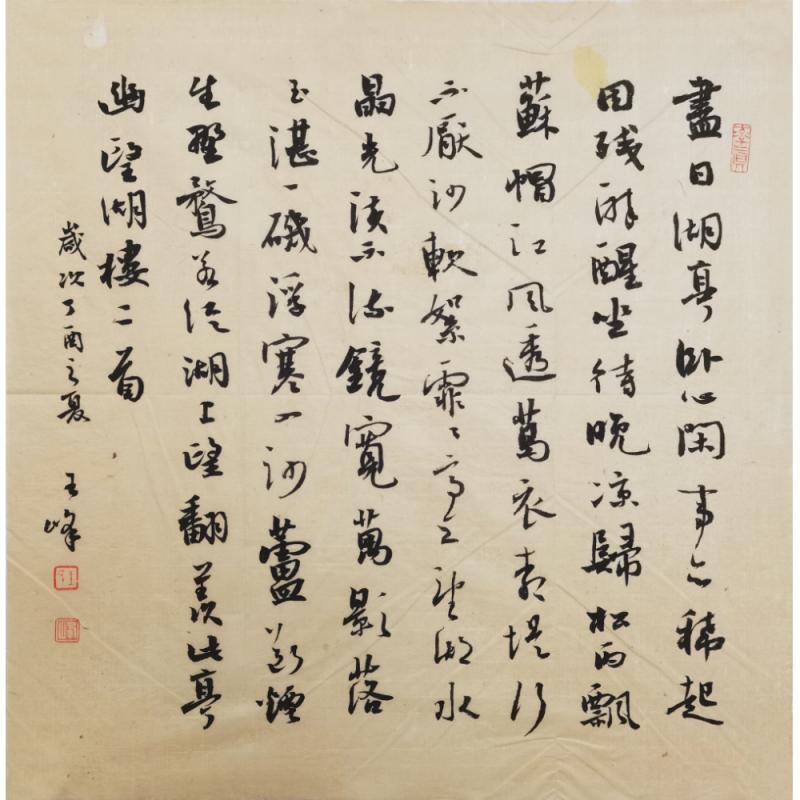 盡日湖亭卧心閑事亦稀起
因残醉醒坐待晚凉歸松雨飄
蘇帽江風透葛衣柳堤行
不厭沙軟絮霏霏高望湖水
晶光淡不流鏡寬萬影落
玉湛一磯浮寒入沙蘆斷煙
生野鶩若從湖上望翻羨此亭
幽望湖樓二首
歲次丁酉之夏 王峰